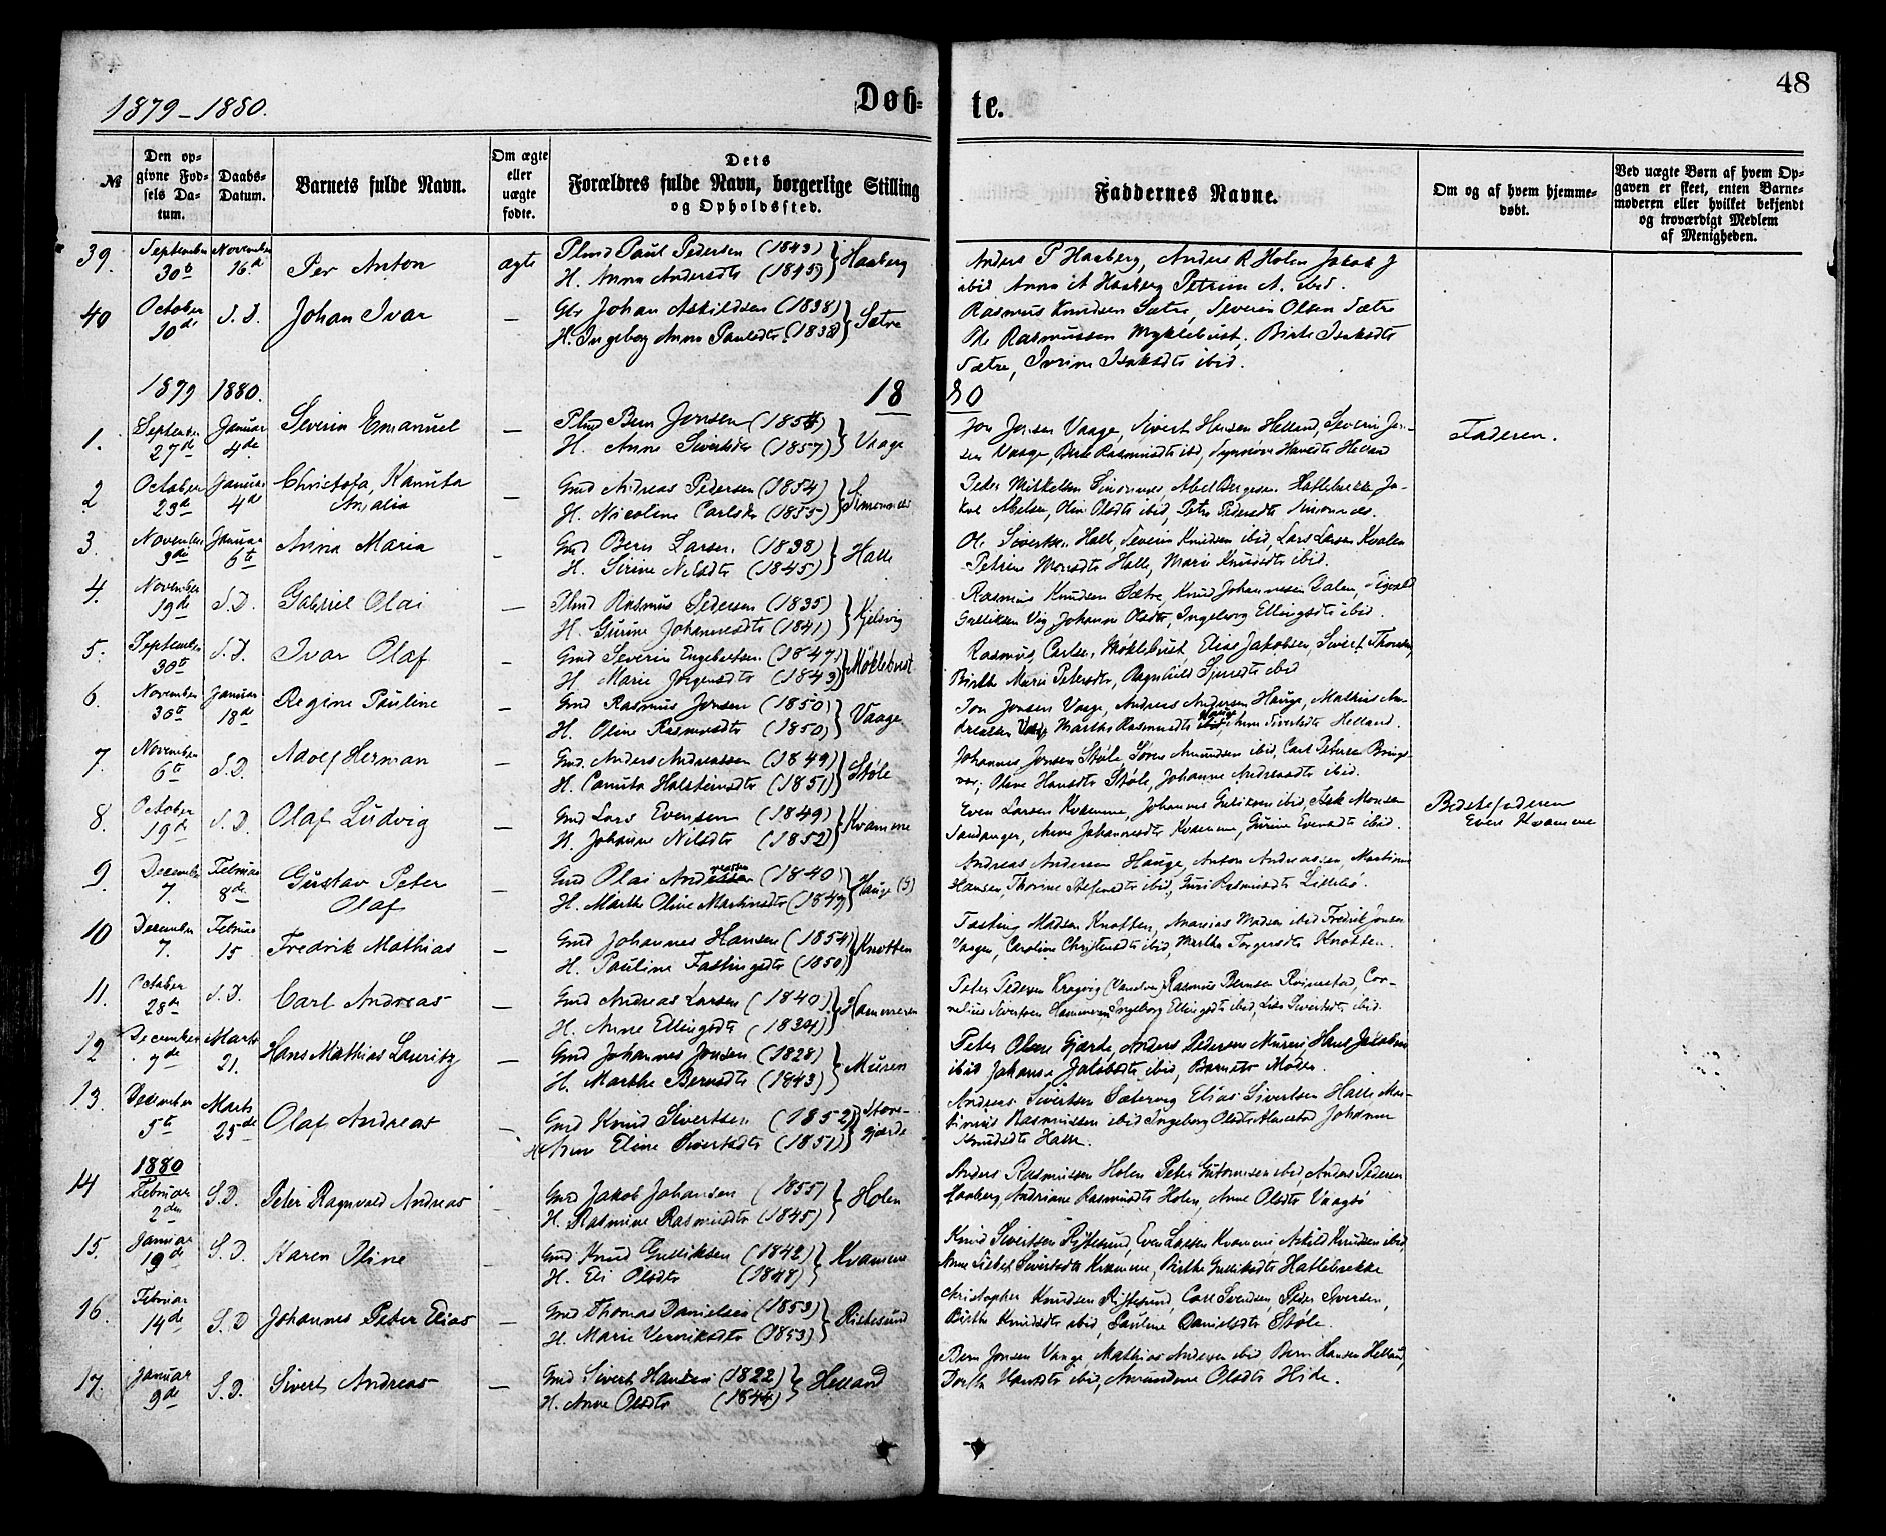 48
1879–1880.
Døb- te.
№
Den op-
givne Fød-
sels Da-
tum.
Daabs-
Datum.
Barnets fulde Navn.
Om ægte
eller
uægte
fødte.
Dets
Forældres fulde Navn, borgerlige Stilling
og Opholdssted.
Faddernes Navne.
Om og af hvem hjemme-
døbt.
Ved uægte Børn af hvem Op-
gaven er skeet, enten Barne-
moderen eller hvilket bekjendt
og troværdigt Medlem
af Menigheden.
39. September 30te November 16de Per Anton ægte
Plmd Paul Pedersen (1843) } Haaberg
H. Anne Andersdtr (1845)
Anders P Haaberg, Anders R Holen Jakob J
ibid Anna A Haaberg Petrine A. ibid.
40 October 10de S. D. Johan Ivar —
Gbr Johan Askildsen (1838) } Sætre
H. Ingeborg Anna Paulsdtr (1838)
Rasmus Knudsen Sætre, Severin Olsen Sætre
Ole Rasmussen Myklebust, Birte Isaksdtr
Sætre, Ivrine Isaksdtr ibid.
1879 1880.
1880
1. September 27de Januar 4de Severin Emanuel —
Plmd Bern Jonsen (1854) } Vaage
H. Anne Sivertsdtr (1857)
Jon Jonsen Vaage, Sivert Hansen Helland, Severin Jon-
sen Vaage, Berte Rasmusdtr ibd, Synnøve Hansdtr Helland
Faderen.
2 October 23de Januar 4de Christofa, Kanuta
Amalia —
Gmd Andreas Pedersen (1854) } Simonnæs
H. Nicoline Carlsdtr (1855)
Peder Mikkelsen Simonnæs, Abel Bergesen Hatlebrekke, Ja-
kob Abelsen, Olin Olsdtr ibid, Petra Pedersdtr Simonnæs.
3. November 9de Januar 6te Anna Maria —
Gmd Bern Larsen (1838) } Halle
H. Sirine Nilsdtr (1845)
Ole Sivertsen Halle, Severin Knudsen ibid, Lars Larsen Kvalen
Petrine Monsdtr Halle, Marie Knudsdtr ibid.
4. November 19de S. D. Gabriel Olai —
Plmd Rasmus Pedersen (1835) } Kjelsvig
H. Gurine Johannesdtr (1841)
Rasmus Knudsen Sætre, Knud Johannesen Dalen,
Gulliksen Vig, Johanne Olsdtr, Ingeborg Ellingsdtr ibid.
5. September 30te S. D. Ivar Olaf —
Gmd Severin Engebretsen (1847) } Møklebust
H. Marie Jørgensdtr (1843)
Rasmus Carlsen Møklebust Elias Jakobsen, Sivert
Birthe Marie Petersdtr, Ragnhild ibid
6. November 30te Januar 18de Regine Pauline —
Gmd Rasmus Jonsen (1850) } Vaage
H. Oline Rasmusdtr (1850)
Jon Jonsen Vaage, Andreas Andersen Hauge, Mathias An-
dreassen Vaage, Marthe Rasmusdtr Anne Sivertsdtr Helland.
7. November 6te S. D. Adolf Herman —
Gmd. Anders Andreassen (1849) } Støle
H. Canuta Halsteinsdtr (1851)
Johannes Jonsen Støle, Søren Amundsen ibid, Carl Petersen Brings-
vor, Olene Hansdtr Støle, Johanne Andreasdtr ibid.
8. October 19de S. D. Olaf Ludvig —
Gmd Lars Evensen (1849) } Kvamme
H. Johanne Nilsdtr (1852)
Even Larsen Kvamme, Johannes Gulliksen ibid, Isak Monsen
Sandanger, Anne Johannesdtr Kvamme, Gurine Evensdtr ibid.
Bedstefaderen
Even Kvamme
9. December 7. Februar 8de Gustav Peter
Olaf —
Gmd Olai (1840) } Hauge (S)
H. Marthe Oline Martinsdtr (1849)
Andreas Andersen Hauge, Anton Andreassen, Martinus
Hansen, Thorine Stefensdtr ibid, Guri Rasmusdtr Lillebø.
10 December 7. Februar 15 Fredrik Mathias —
Gmd Johannes Hansen (1854) } Knotten
H. Pauline Fastingsdtr (1850)
Fasting Madsen Knotten, Ananias Madsen ibid Fredrik Jonsen
Vaagen, Caroline Christensdtr ibid, Marthe Torgersdtr Knotten.
11. October 28de S. D. Carl Andreas —
Gmd Andreas Larsen (1840) } Hammeren
H. Anne Ellingsdtr (1834)
Peter Pedersen Kragvig (Vanelven) Rasmus Bernsen Røinestad, Cor-
nelius Sivertsen Hammeren, Ingeborg Ellingsdtr ibid, Lise Sivertsdtr ibid.
12 December 7de Marts 21. Hans Mathias Lauritz —
Gmd Johannes Jonsen (1828) } Muren
H. Marthe Berntsdtr (1843)
Peter Olsen Gjærde, Anders Pedersen Muren, Hans Jakobsen
ibid Johanne Jakobsdtr ibid, Barnets Moder.
13. December 5te Marts 25de Olaf Andreas —
Gmd Knud Sivertsen (1852) } Store-
gjærde
H. Anne Eline Sivertsdtr (1851)
Andreas Sivertsen Sætervig Elias Sivertsen Halle Mar-
tinus Rasmussen ibid Ingeborg Olsdtr Johanne
Knudsdtr Halle.
1880
14 Februar 2den S. D. Peter Ragnvald Andreas —
Gmd Jakob Johansen (1855) } Holen
H. Rasmine Rasmusdtr (1845)
Anders Rasmussen Holen Peter Guttormsen ibid, Anders Pedersen
Haaberg, Andriane Rasmusdtr Holen, Anne Olsdtr Vaagsø
15. Januar 19de S. D. Karen Oline —
Gmd Knud Gulliksen (1842) } Kvamme
H. Eli Olsdtr (1848)
Knud Sivertsen Riftesund, Even Larsen Kvamme Askild Knudsen ibid,
Anne Lisbet Sivertsdtr Kvamme, Birthe Gulliksdtr Hatlebrekke
16. Februar 14de S. D Johannes Peter Elias —
Gmd Thomas Danielsen (1853) } Riftesund
H. Marie Henriksdtr (1853)
Christopher Knudsen Riftesund, Carl Svendsen, Peder Iversen,
Birthe Knudsdtr ibid, Pauline Danielsdtr Støle.
17. Januar 9de S. D. Sivert Andreas —
Gmd Sivert Hansen (1822) } Helland
H. Anne Olsdtr (1844)
Bern Jonsen Vaage, Mathias Andersen ibid, Bern Hansen Helland,
Dorthe Hansdtr ibid, Amundine Olsdtr Hide.